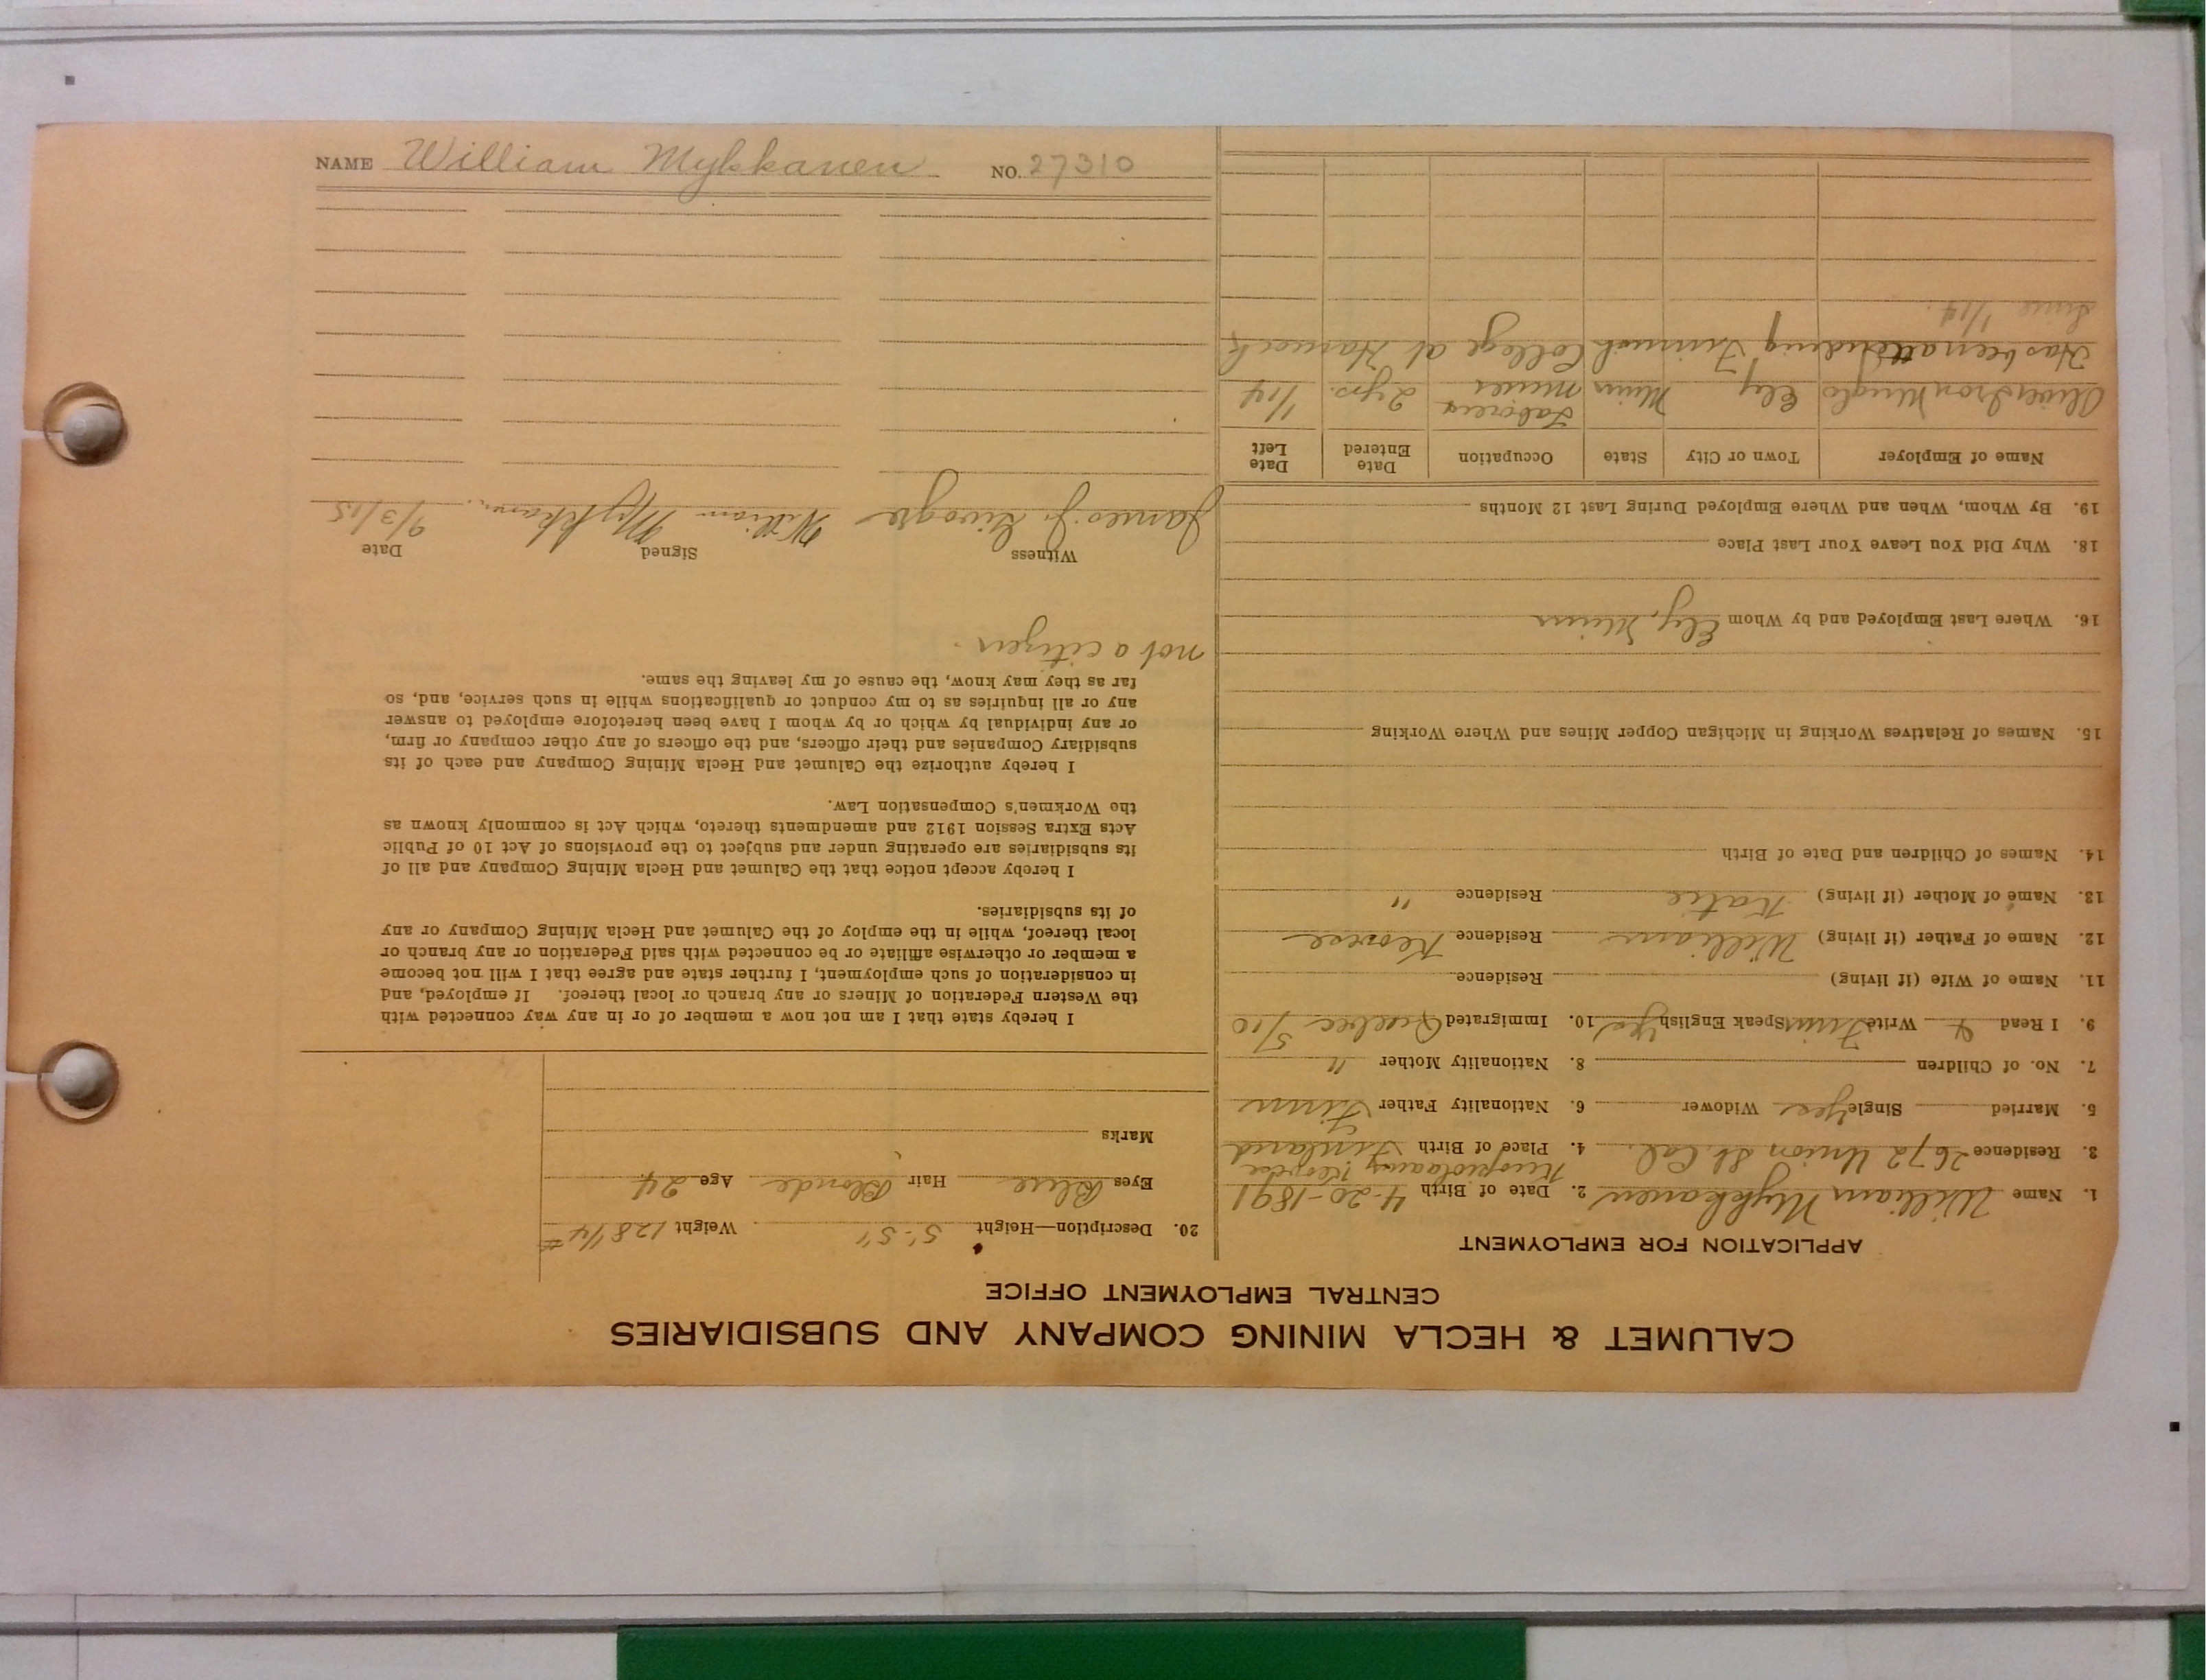 NAME William Mykkanen NO. 27310
CALUMET & HECLA MINING COMPANY AND SUBSIDIARIES
CENTRAL EMPLOYMENT OFFICE
APPLICATION FOR EMPLOYMENT
1. Name William Mykkanen 2. Date of Birth 4-20-1891
3. Residence 2672 Union St. Cal. 4. Place of Birth Finland
5. Married Single Yes Widower 6. Nationality Father Finn
7. No. of Children 8. Nationality Mother "
9. I Read & Write Finn Speak English Yes 10. Immigrated Quebec 5/10
11. Name of Wife (if living) Residence
12. Name of Father (if living) William Residence
13. Name of Mother (if living) Katie Residence "
14. Names of Children and Date of Birth
15. Names of Relatives Working in Michigan Copper Mines and Where Working
16. Where Last Employed and by Whom Ely, Minn
18. Why Did You Leave Your Last Place
19. By Whom, When and Where Employed During Last 12 Months
Name of Employer Town or City State Occupation Date Entered Date Left
Oliver Iron Ming Co Ely Minn Laborer 2 yrs. 1/14
Has been attending Finnish College at Hancock
Since 1/14.
20. Description—Height 5'-5" Weight 128 1/4 #
Eyes Blue Hair Blonde Age 24
Marks
I hereby state that I am not now a member of or in any way connected with
the Western Federation of Miners or any branch or local thereof. If employed, and
in consideration of such employment, I further state and agree that I will not become
a member or otherwise affiliate or be connected with said Federation or any branch or
local thereof, while in the employ of the Calumet and Hecla Mining Company or any
of its subsidiaries.
I hereby accept notice that the Calumet and Hecla Mining Company and all of
its subsidiaries are operating under and subject to the provisions of Act 10 of Public
Acts Extra Session 1912 and amendments thereto, which Act is commonly known as
the Workmen's Compensation Law.
I hereby authorize the Calumet and Hecla Mining Company and each of its
subsidiary Companies and their officers, and the officers of any other company or firm,
or any individual by which or by whom I have been heretofore employed to answer
any or all inquiries as to my conduct or qualifications while in such service, and, so
far as they may know, the cause of my leaving the same.
not a citizen.
Witness Signed Date
James J. William Mykkanen 9/3/15